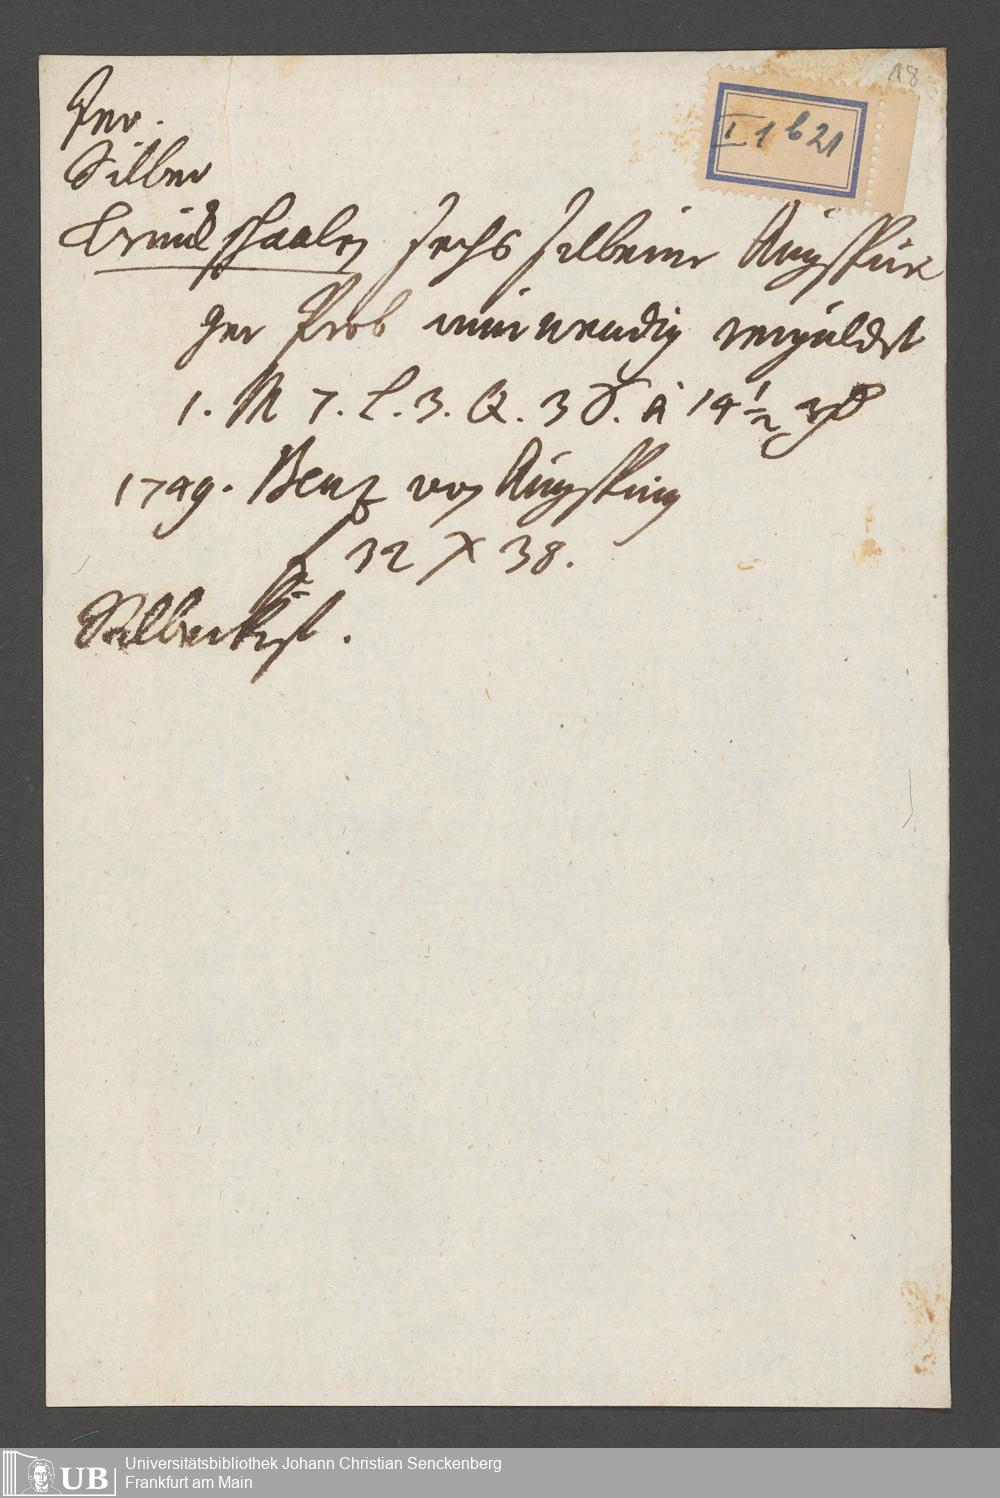 18
I 1 b 21
Inv.
Silber
schaalen sechs silberne Augspur
ger Prob innwendig vergüldet
1. M 7. L. 3. Q. 3 ₰. à 14 1/2
1749. Benz von Augspurg
f 32 x 38.
Silberkist.
UB
Universitätsbibliothek Johann Christian Senckenberg
Frankfurt am Main